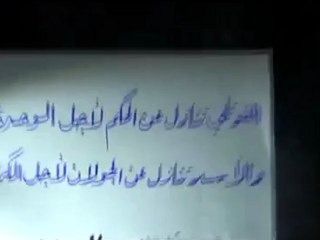 القوتلي تنازل عن الحكم لأجل الوحدة
والأسد تنازل عن الجولان لأجل الك